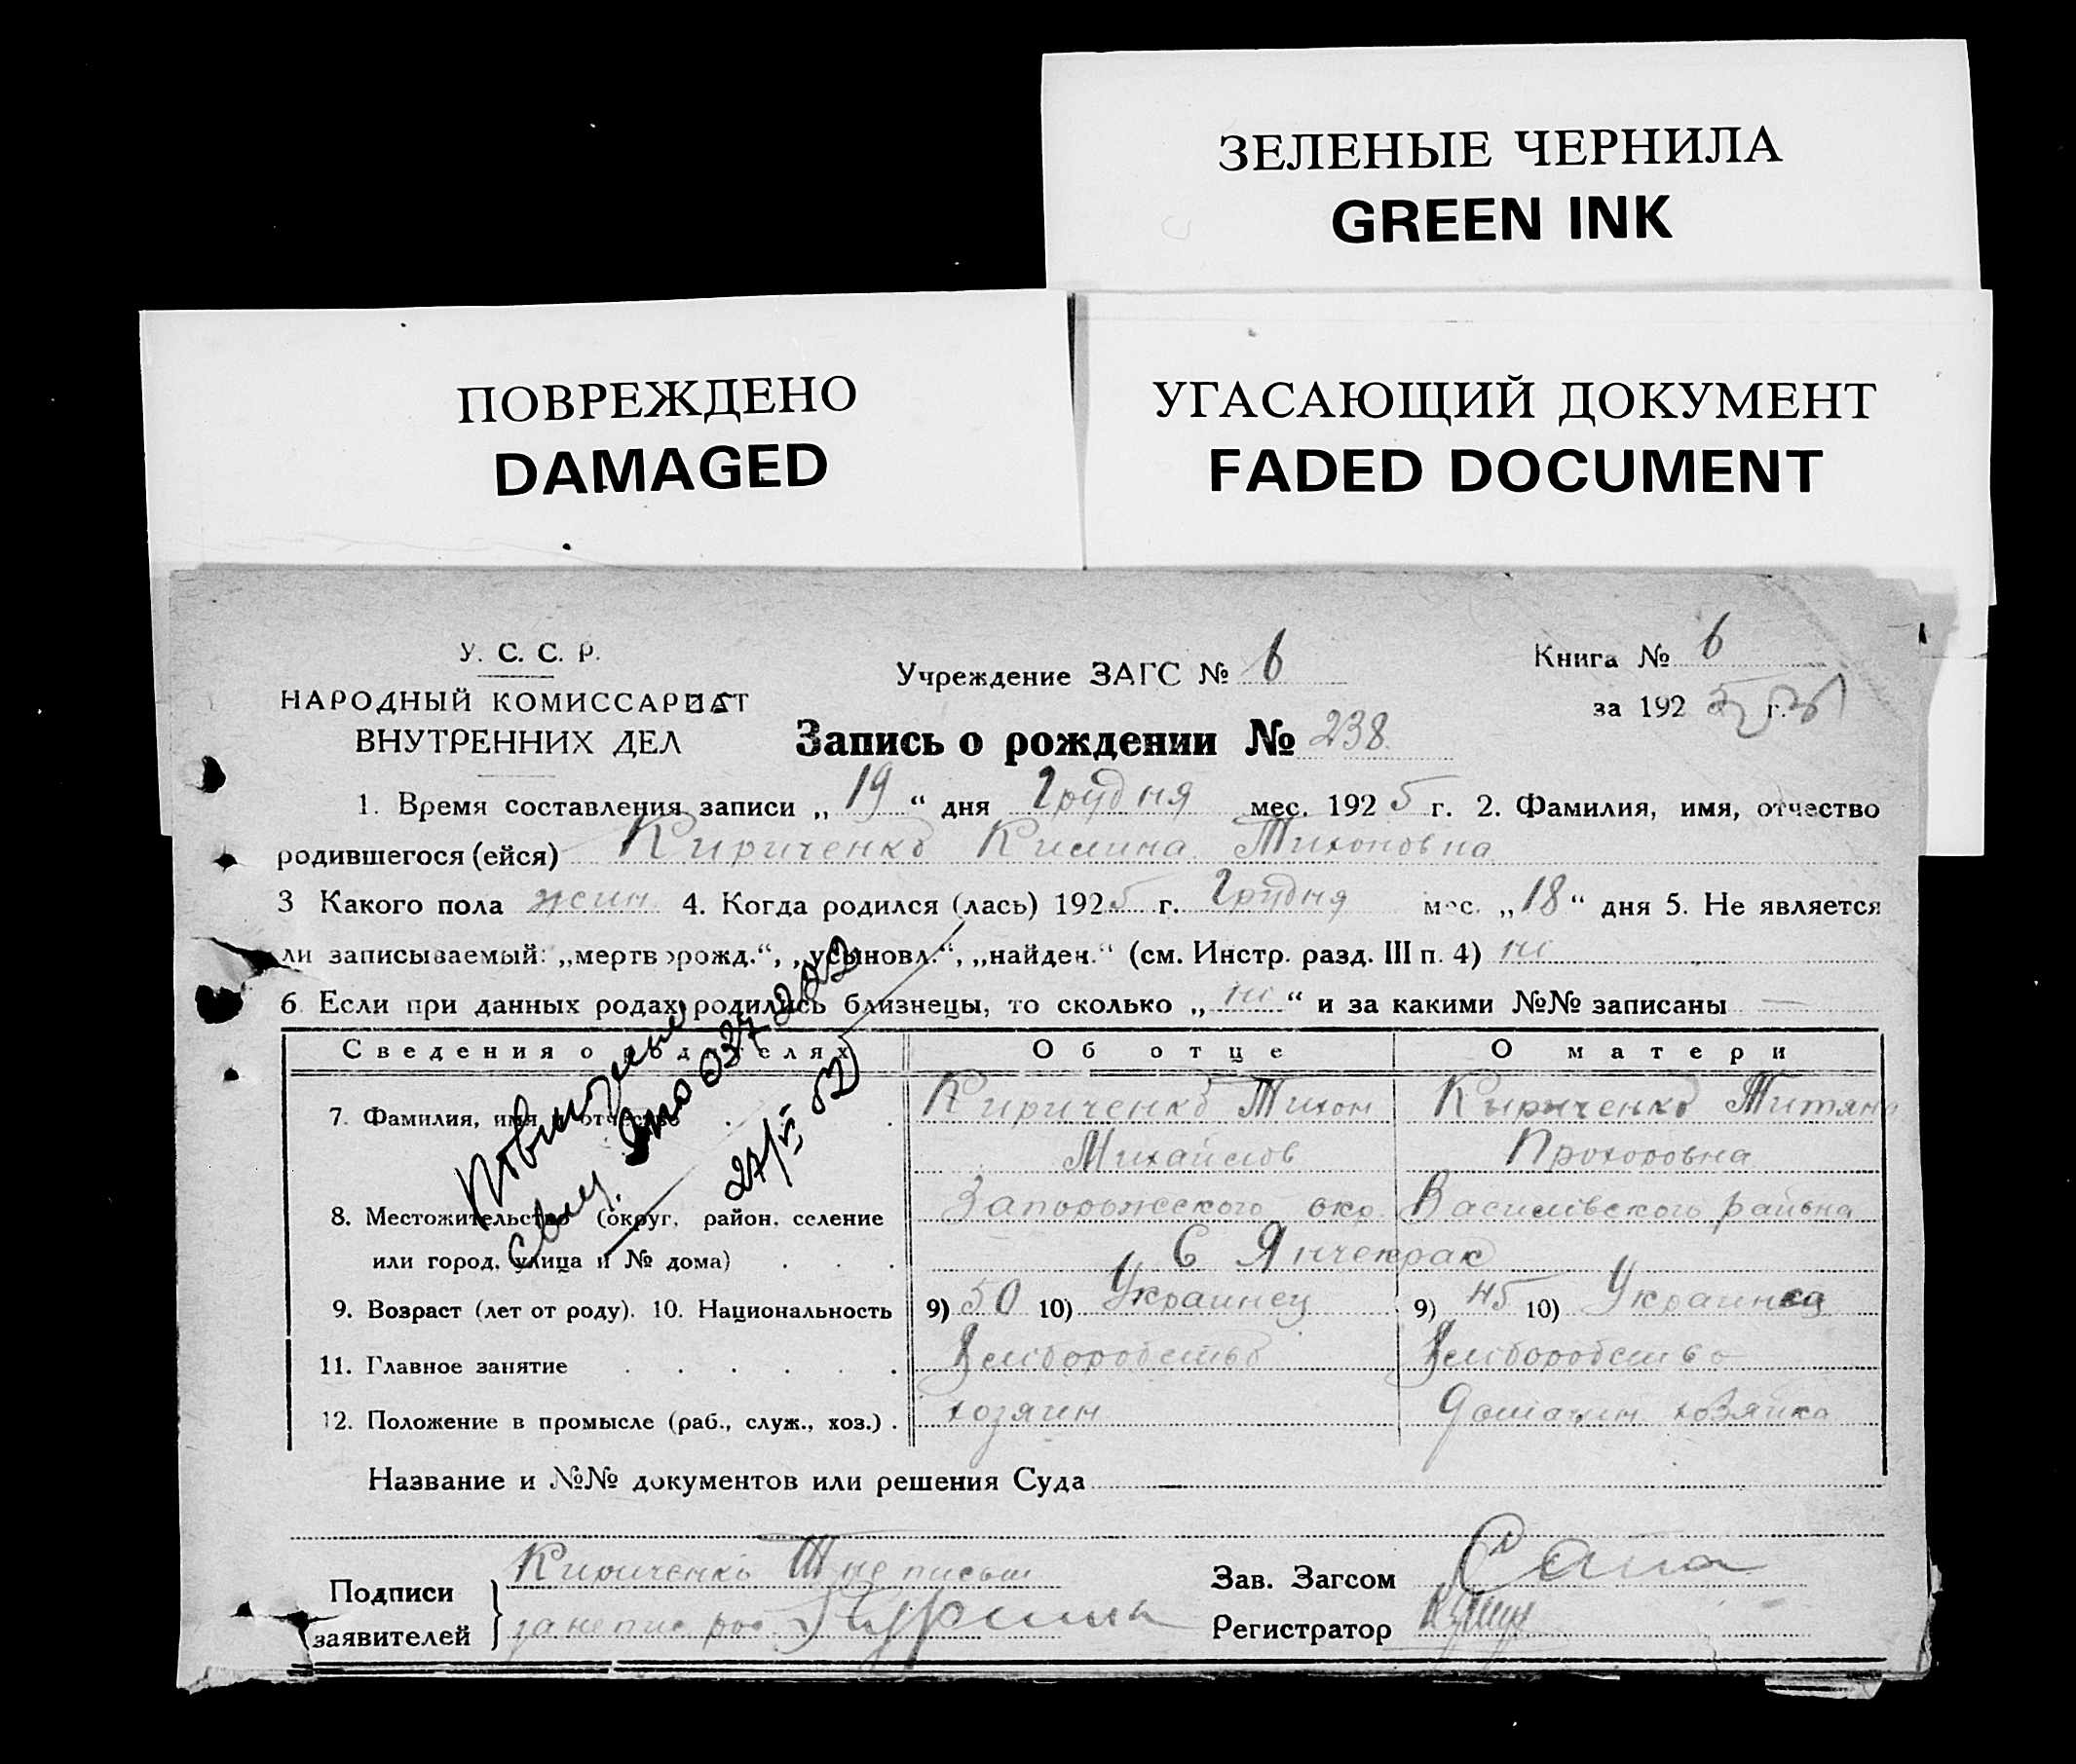 ЗЕЛЕНЫЕ ЧЕРНИЛА
GREEN INK
ПОВРЕЖДЕНО
DAMAGED
УГАСАЮЩИЙ ДОКУМЕНТ
FADED DOCUMENT
У. С. С. Р.
НАРОДНЫЙ КОМИССАРИАТ
ВНУТРЕННИХ ДЕЛ
Учреждение ЗАГС № 6
Книга № 6
за 1925 г.
Запись о рождении № 238.
1. Время составления записи „ 19 “ дня Грудня мес. 1925 г. 2. Фамилия, имя, отчество
родившегося (ейся) Кириченко Килина Тихоновна
3 Какого пола жин. 4. Когда родился (лась) 1925 г. Грудня мес. „18“ дня 5. Не является
ли записываемый: „мертворожд.“, „усыновл.“, „найден.“ (см. Инстр. разд. III п. 4) ни
6 Если при данных родах родились близнецы, то сколько „ ни “ и за какими №№ записаны —
Сведения о родителях Об отце О матери
7. Фамилия, имя и отчество Кириченко Тихон Кириченко Титяна
Михайлов Прохоровна
8. Местожительство (округ, район, селение Запорожского окр. Василивского района
или город, улица и № дома) С Янчекрак
9. Возраст (лет от роду). 10. Национальность 9) 50 10) Украинец 9) 45 10) Украинка
11. Главное занятие Хлиборобство Хлиборобство
12. Положение в промысле (раб., служ., хоз.) хозяин домашн хозяйка
Повторное
свид.
27/V 52
Название и №№ документов или решения Суда
Подписи
заявителей
Кириченко Т неписьм
за непис рос
Зав. Загсом
Регистратор